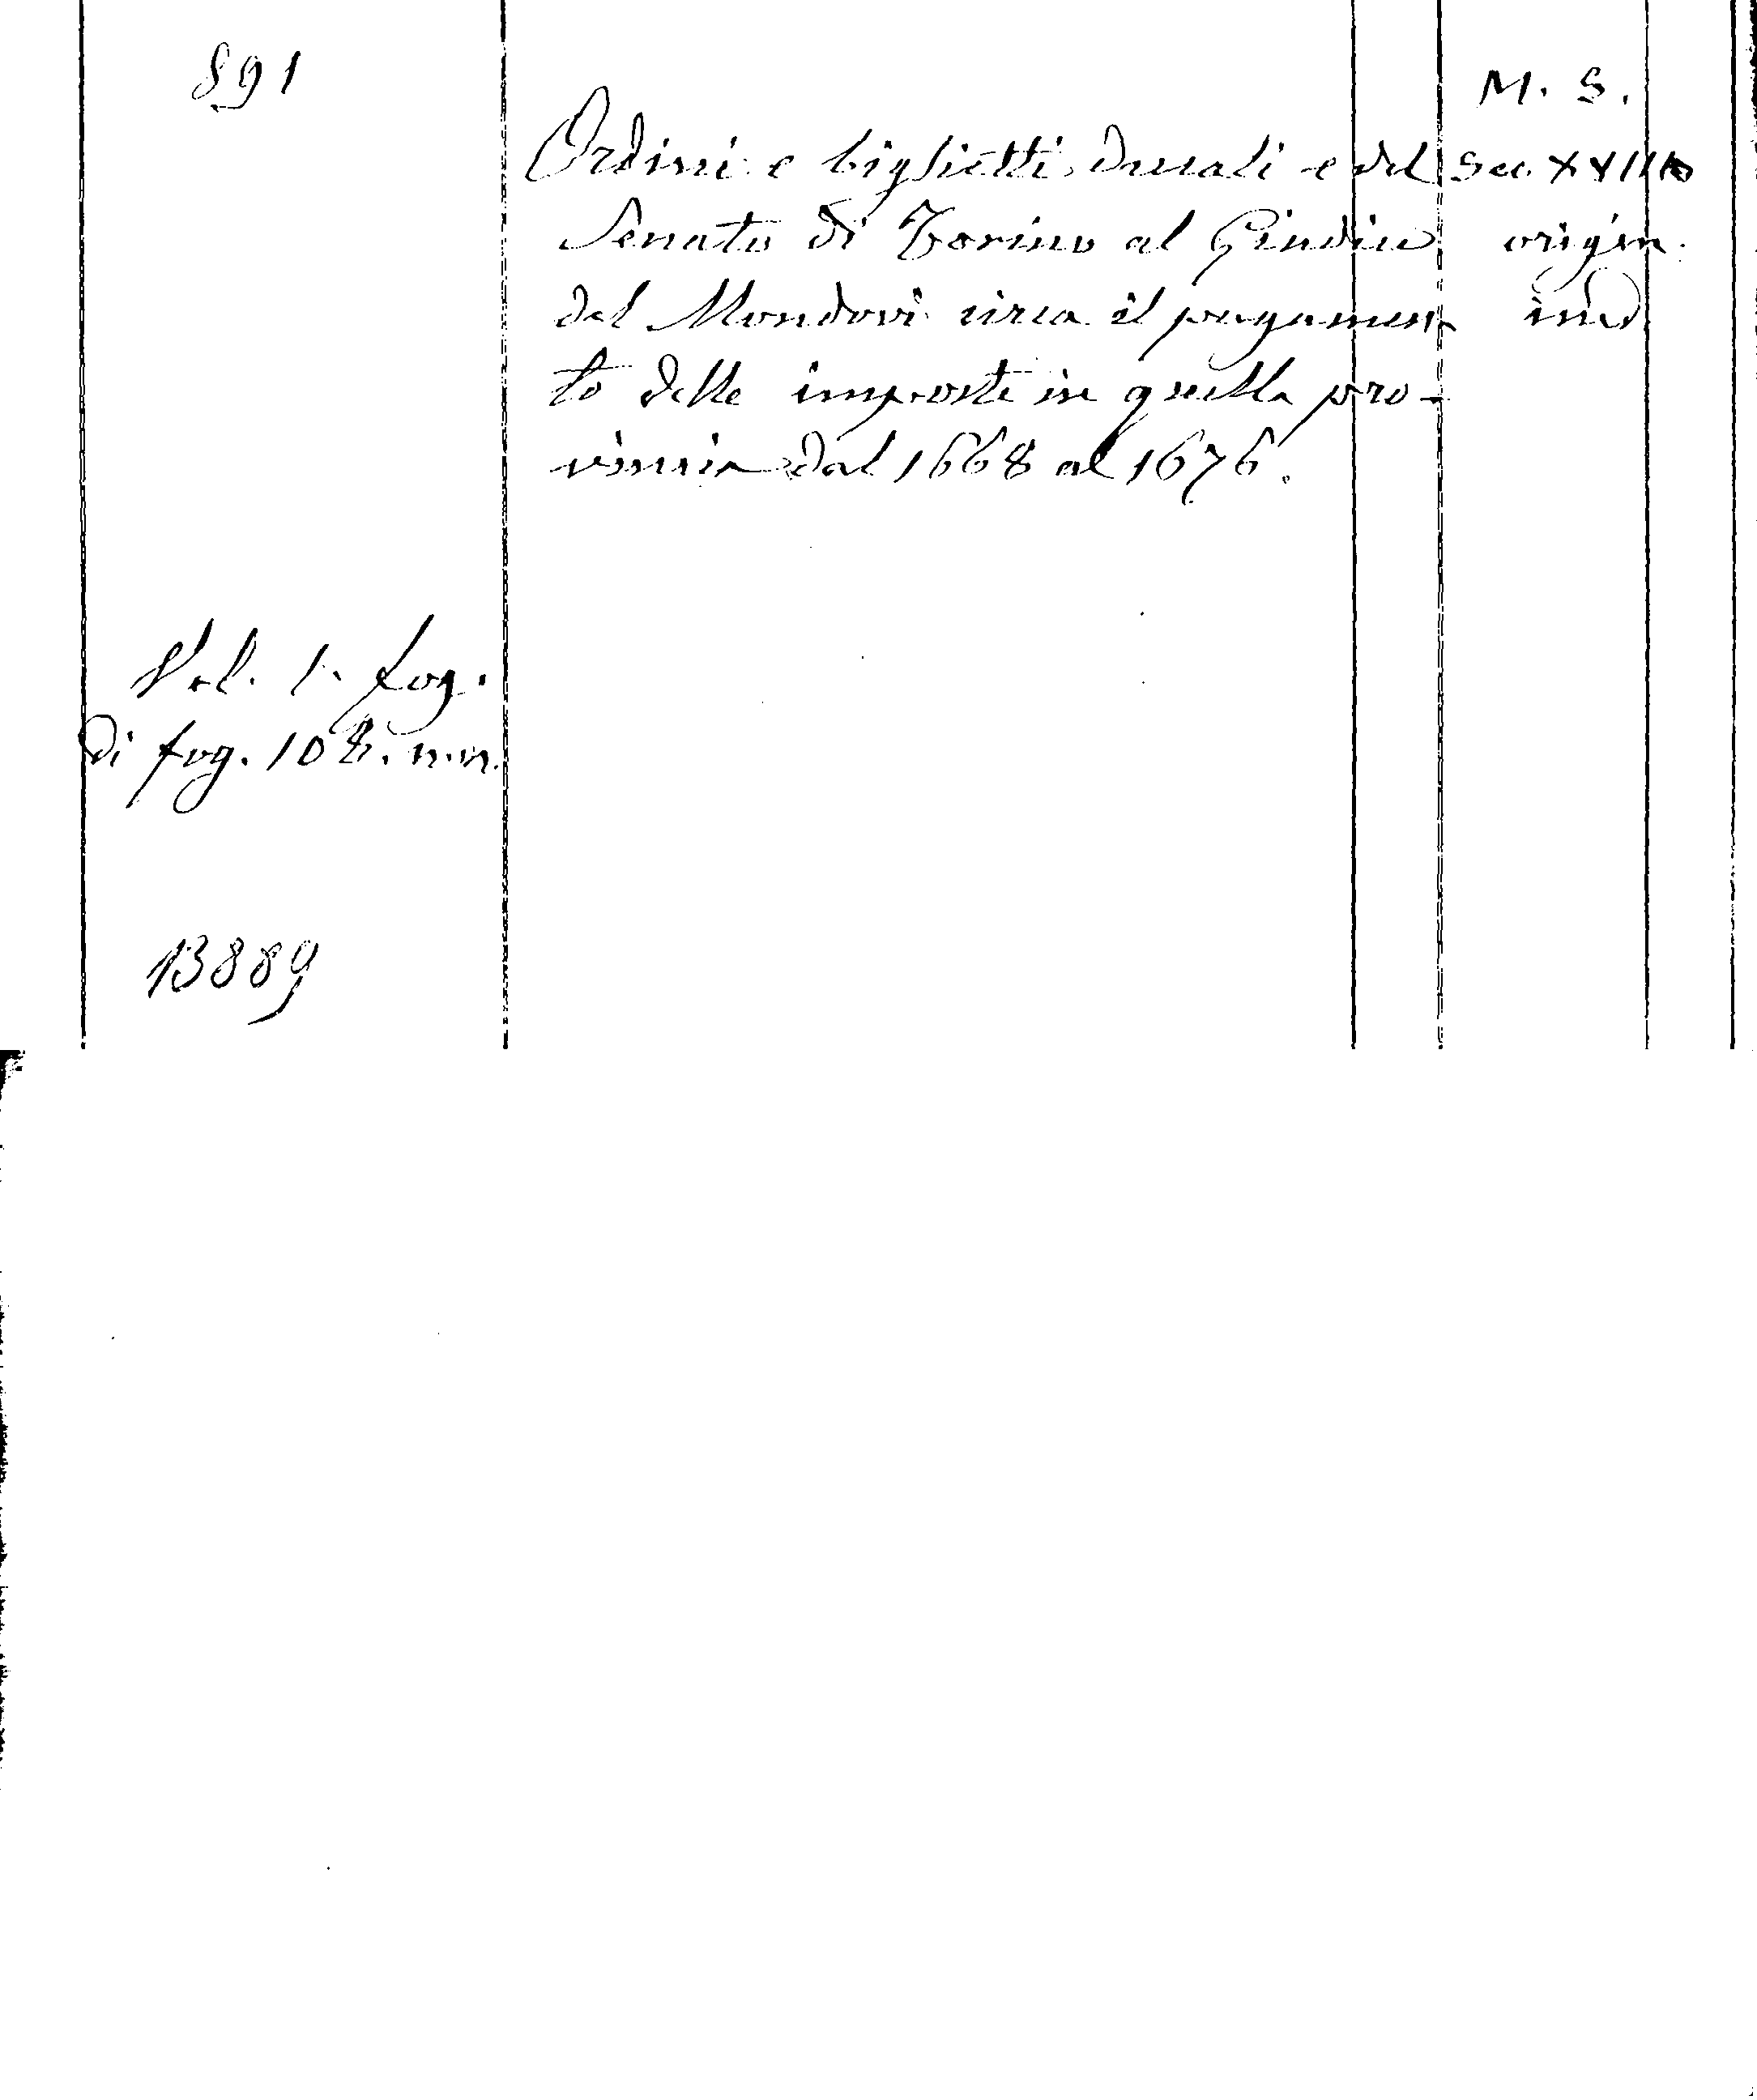 891
Ordini e biglietti ducali e del
Senato di Torino al Giudice
del Mondovì circa il pagamen
to delle imposte in quella pro-
vincia dal 1668 al 1676.
M. S.
Sec.
origin.
Vol. 1. fog.
di fog. 108. n.n.
13889